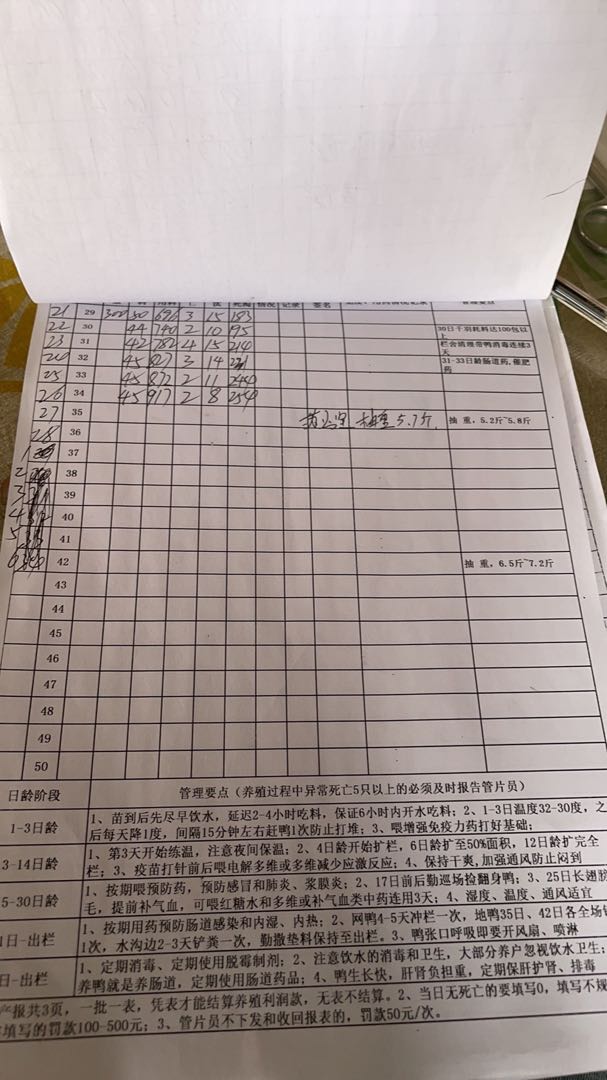 21 29 300 50 696 3 15 183
22 30 44 740 2 10 195
30日千羽耗料达100包以上
23 31 42 782 4 15 214
栏舍清理带鸭消毒连续3天
32 45 827 3 14
31-33日龄肠道药,催肥药
25 33 45 872 2 11
26 34 45 917 2 8 254
27 35 5.7斤 抽 重，5.2斤~5.8斤
28 36
37
38
39
40
41
42 抽 重，6.5斤~7.2斤
43
44
45
46
47
48
49
50
日龄阶段 管理要点（养殖过程中异常死亡5只以上的必须及时报告管片员）
1-3日龄 1、苗到后先尽早饮水，延迟2-4小时吃料，保证6小时内开水吃料；2、1-3日温度32-30度，之
后每天降1度，间隔15分钟左右赶鸭1次防止打堆；3、喂增强免疫力药打好基础；
3-14日龄 1、第3天开始练温，注意夜间保温；2、4日龄开始扩栏，6日龄扩至50%面积，12日龄扩完全
栏；3、疫苗打针前后喂电解多维或多维减少应激反应；4、保持干爽,加强通风防止闷到
5-30日龄 1、按期喂预防药，预防感冒和肺炎、浆膜炎；2、17日前后勤巡场捡翻身鸭；3、25日长翅膀
毛，提前补气血，可喂红糖水和多维或补气血类中药连用3天；4、湿度、温度、通风适宜
1日-出栏 1、按期用药预防肠道感染和内湿、内热；2、网鸭4-5天冲栏一次，地鸭35日、42日各全场铲
1次，水沟边2-3天铲粪一次，勤撒垫料保持至出栏。3、鸭张口呼吸即要开风扇、喷淋
日-出栏 1、定期消毒、定期使用脱霉制剂；2、注意饮水的消毒和卫生，大部分养户忽视饮水卫生；
养鸭就是养肠道，定期使用肠道药品；4、鸭生长快，肝肾负担重，定期保肝护肾、排毒
产报共3页，一批一表，凭表才能结算养殖利润款，无表不结算。2、当日无死亡的要填写0，填写不规
填写的罚款100-500元；3、管片员不下发和收回报表的，罚款50元/次。